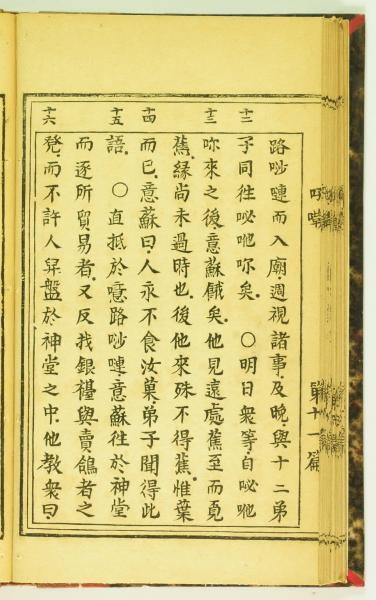 第十一篇
路唦嗹而入廟.週視諸事.及晚.與十二弟
十二 子同徃咇吔㖇矣. ○明日衆等.自咇吔
十三 㖇來之後.意蘇餓矣.他見遠處蕉至而覓
蕉.緣尚未過時也.後他來殊不得蕉.惟葉
十四 而已.意蘇曰.人永不食汝菓.弟子聞得此
十五 語. ○直抵於噫路唦嗹.意蘇徃於神堂
而逐所貿易者.又反找銀櫈與賣鴿者之
十六 凳.而不許人舁盤於神堂之中.他教衆曰.